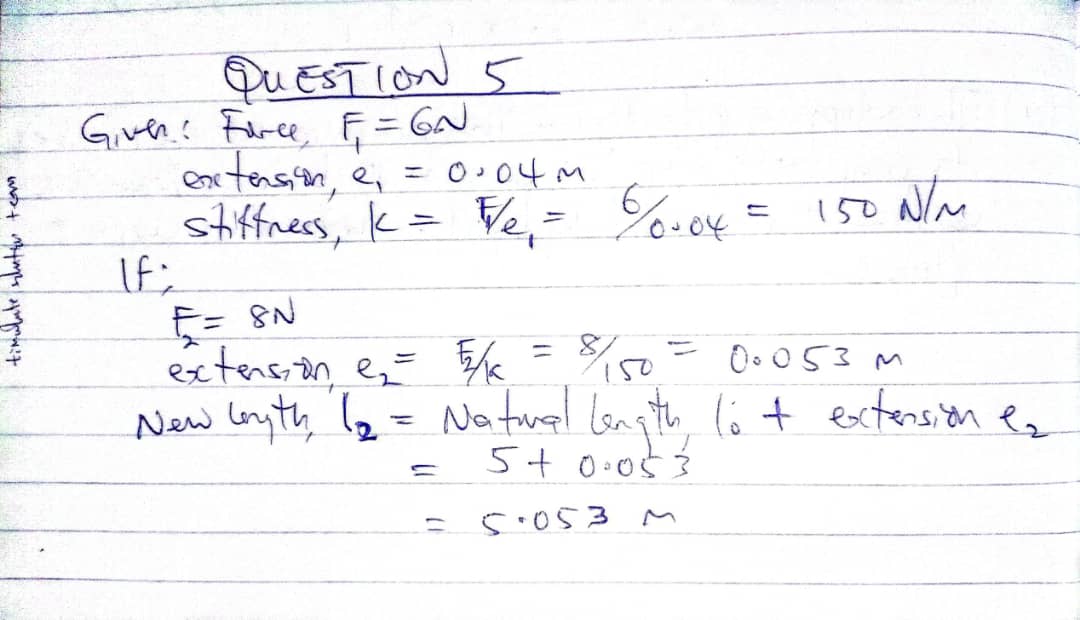 QUESTION 5
Given: Force, F₁ = 6N
extension, e₁ = 0.04 m
stiffness, k = F/e₁ = 6/0.04 = 150 N/m
If;
F₂ = 8N
extension, e₂ = F₂/k = 8/150 = 0.053 m
New length, l₂ = Natural length, l₀ + extension e₂
= 5 + 0.053
= 5.053 m
team